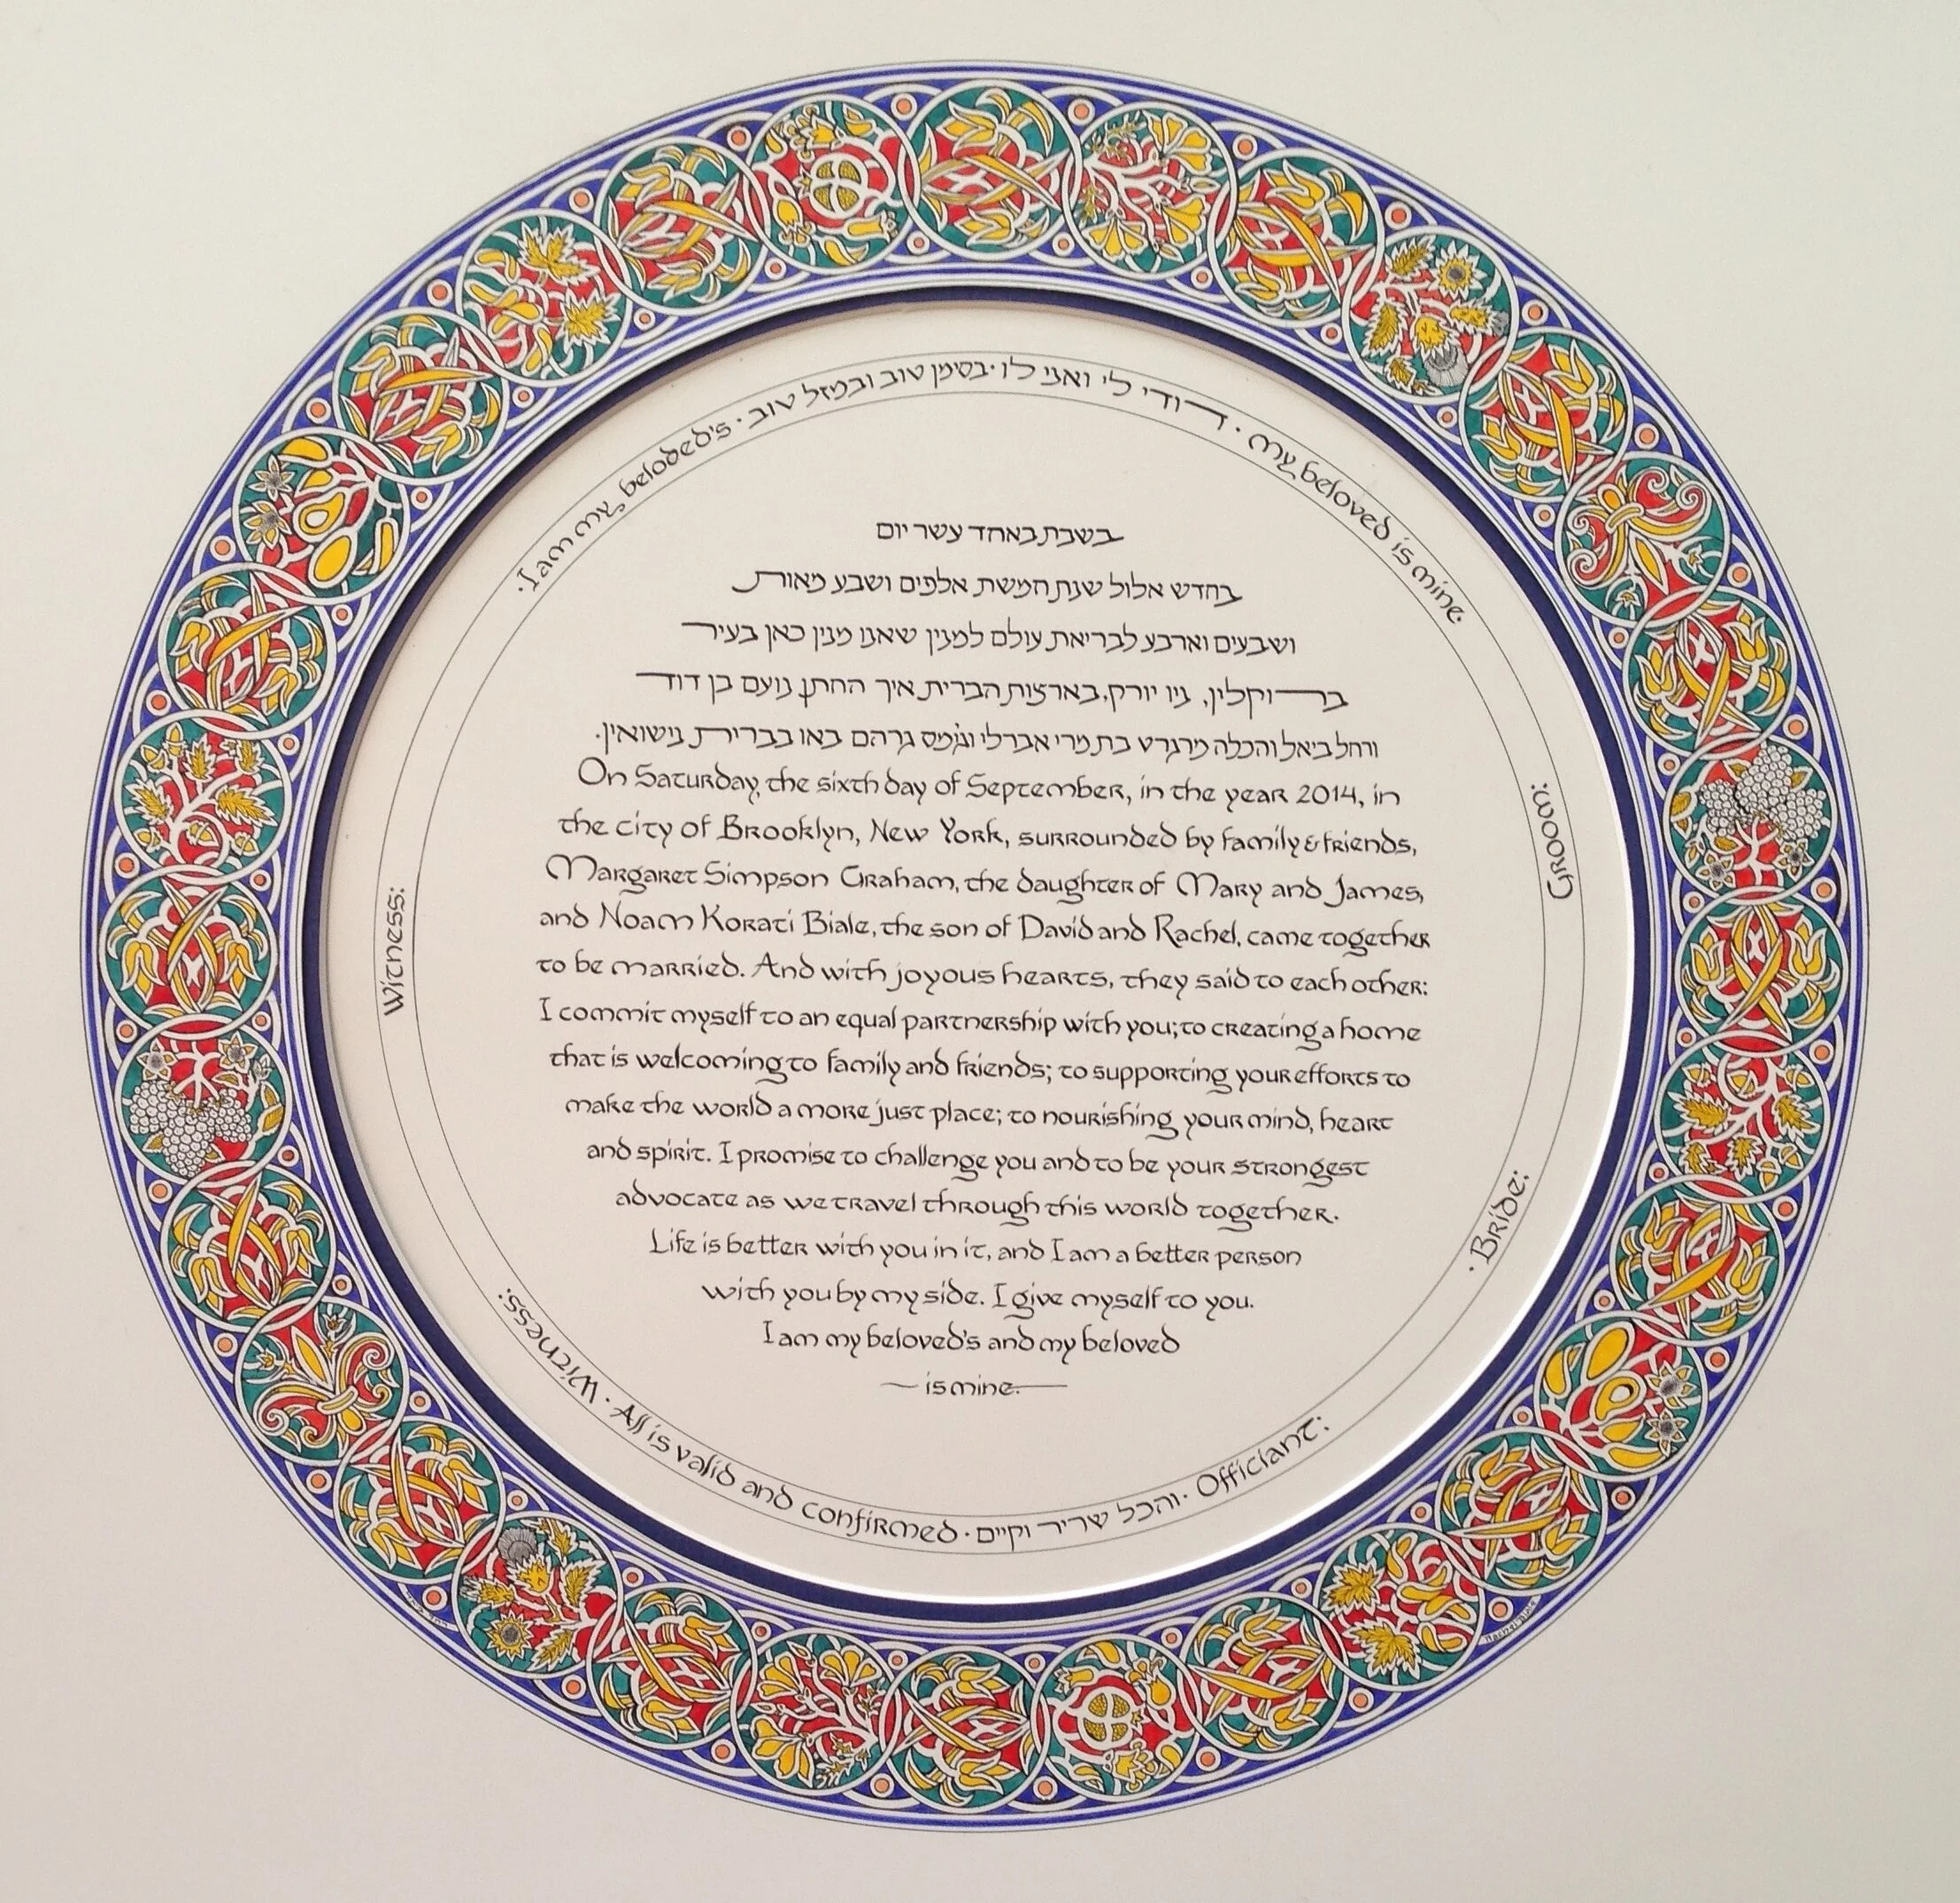 · I am my beloded's ·
דודי לי ואני לו · בסימן טוב ובמזל טוב
· my beloved is mine ·
בשבת באחד עשר יום
בחדש אלול שנת חמשת אלפים ושבע מאות
ושבעים וארבע לבריאת עולם למנין שאנו מנין כאן בעיר
ברוקלין, ניו יורק, בארצות הברית איך החתן נועם בן דוד
ורחל ביאל והכלה מרגרט בת מרי אברלי וג'מס גרהם באו בברית נישואין.
On Saturday, the sixth day of September, in the year 2014, in
the city of Brooklyn, New York, surrounded by family & friends,
Margaret Simpson Graham, the daughter of Mary and James,
and Noam Korati Biale, the son of David and Rachel, came together
to be married. And with joyous hearts, they said to each other:
I commit myself to an equal partnership with you; to creating a home
that is welcoming to family and friends; to supporting your efforts to
make the world a more just place; to nourishing your mind, heart
and spirit. I promise to challenge you and to be your strongest
advocate as we travel through this world together.
Life is better with you in it, and I am a better person
with you by my side. I give myself to you.
I am my beloved's and my beloved
— is mine. —
Groom:
· Bride:
· Officiant:
והכל שריר וקיים
· All is valid and confirmed ·
Witness:
Witness:
Rachel Biale